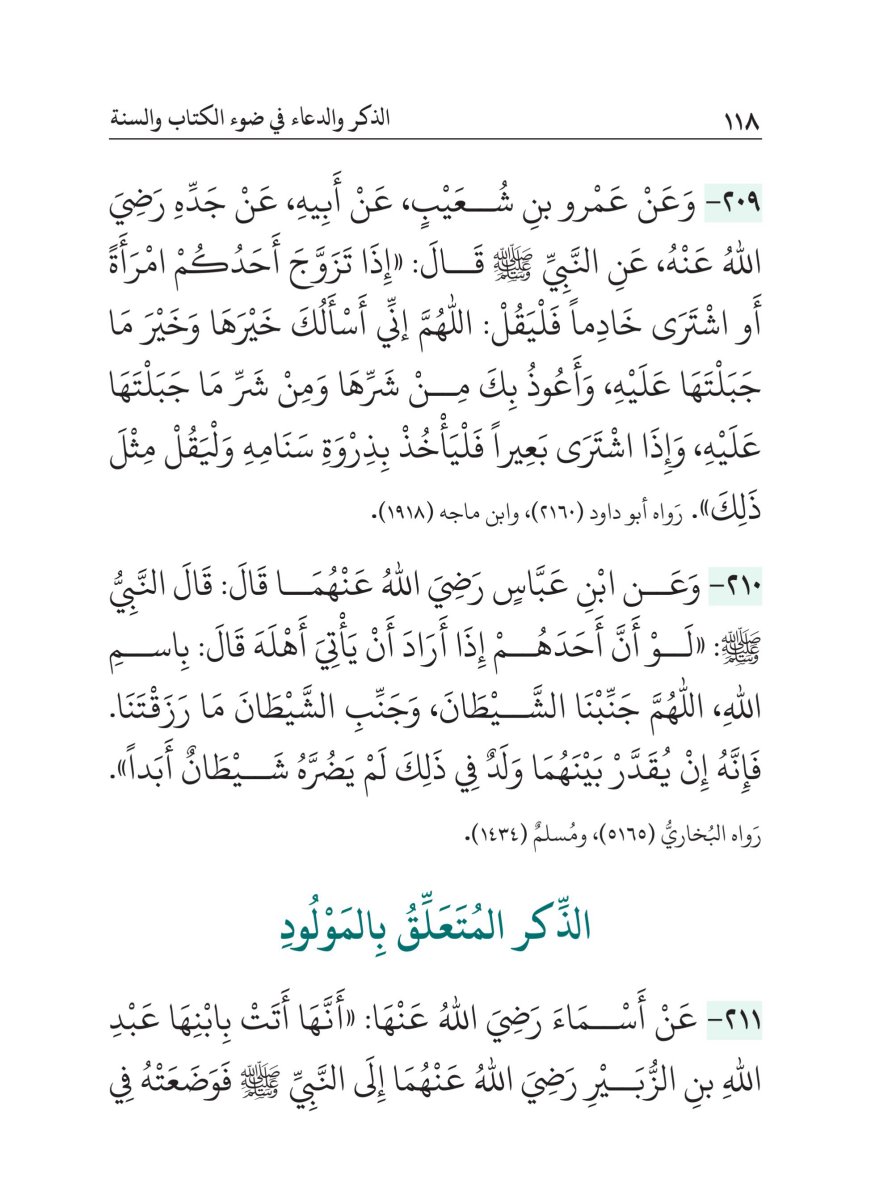 ١١٨ الذكر والدعاء في ضوء الكتاب والسنة
٢٠٩- وَعَنْ عَمْرو بنِ شُعَيْبٍ، عَنْ أَبِيهِ، عَنْ جَدِّهِ رَضِيَ
اللهُ عَنْهُ، عَنِ النَّبِيِّ ﷺ قَالَ: «إِذَا تَزَوَّجَ أَحَدُكُمْ امْرَأَةً
أَو اشْتَرَى خَادِماً فَلْيَقُلْ: اللَّهُمَّ إنِّي أَسْأَلُكَ خَيْرَهَا وَخَيْرَ مَا
جَبَلْتَهَا عَلَيْهِ، وَأَعُوذُ بِكَ مِنْ شَرِّهَا وَمِنْ شَرِّ مَا جَبَلْتَهَا
عَلَيْهِ، وَإِذَا اشْتَرَى بَعِيراً فَلْيَأْخُذْ بِذِرْوَةِ سَنَامِهِ وَلْيَقُلْ مِثْلَ
ذَلِكَ». رَواه أبو داود (٢١٦٠)، وابن ماجه (١٩١٨).
٢١٠- وَعَن ابْنِ عَبَّاسٍ رَضِيَ اللهُ عَنْهُمَا قَالَ: قَالَ النَّبِيُّ
ﷺ: «لَوْ أَنَّ أَحَدَهُمْ إِذَا أَرَادَ أَنْ يَأْتِيَ أَهْلَهَ قَالَ: بِاسمِ
اللهِ، اللَّهُمَّ جَنِّبْنَا الشَّيْطَانَ، وَجَنِّبِ الشَّيْطَانَ مَا رَزَقْتَنَا.
فَإِنَّهُ إِنْ يُقَدَّرْ بَيْنَهُمَا وَلَدٌ فِي ذَلِكَ لَمْ يَضُرَّهُ شَيْطَانٌ أَبَداً».
رَواه البُخاريُّ (٥١٦٥)، ومُسلمٌ (١٤٣٤).
الذِّكر المُتَعَلِّقُ بِالمَوْلُودِ
٢١١- عَنْ أَسْمَاءَ رَضِيَ اللهُ عَنْهَا: «أَنَّهَا أَتَتْ بِابْنِهَا عَبْدِ
اللهِ بنِ الزُّبَيْرِ رَضِيَ اللهُ عَنْهُمَا إِلَى النَّبِيِّ ﷺ فَوَضَعَتْهُ فِي